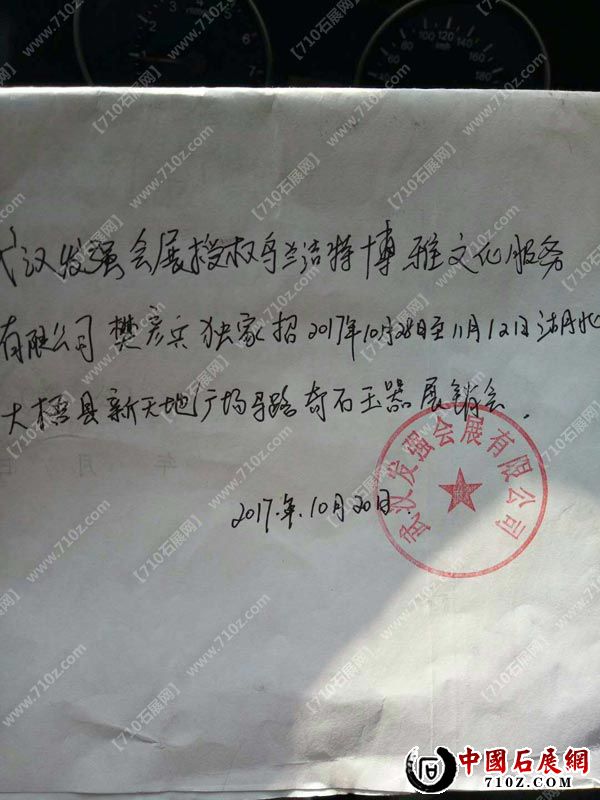 武汉发强会展授权乌兰浩特博雅文化服务
有限公司樊彦兵独家招2017年10月28日至11月12日湖北
大悟县新天地广场丝路奇石玉器展销会.
2017.年.10月20日.
武汉发强会展有限公司
【710石展网】
www.710z.com
中國石展網
710Z.COM
100
120
140
80
160
60
180
km/h
5
6
7